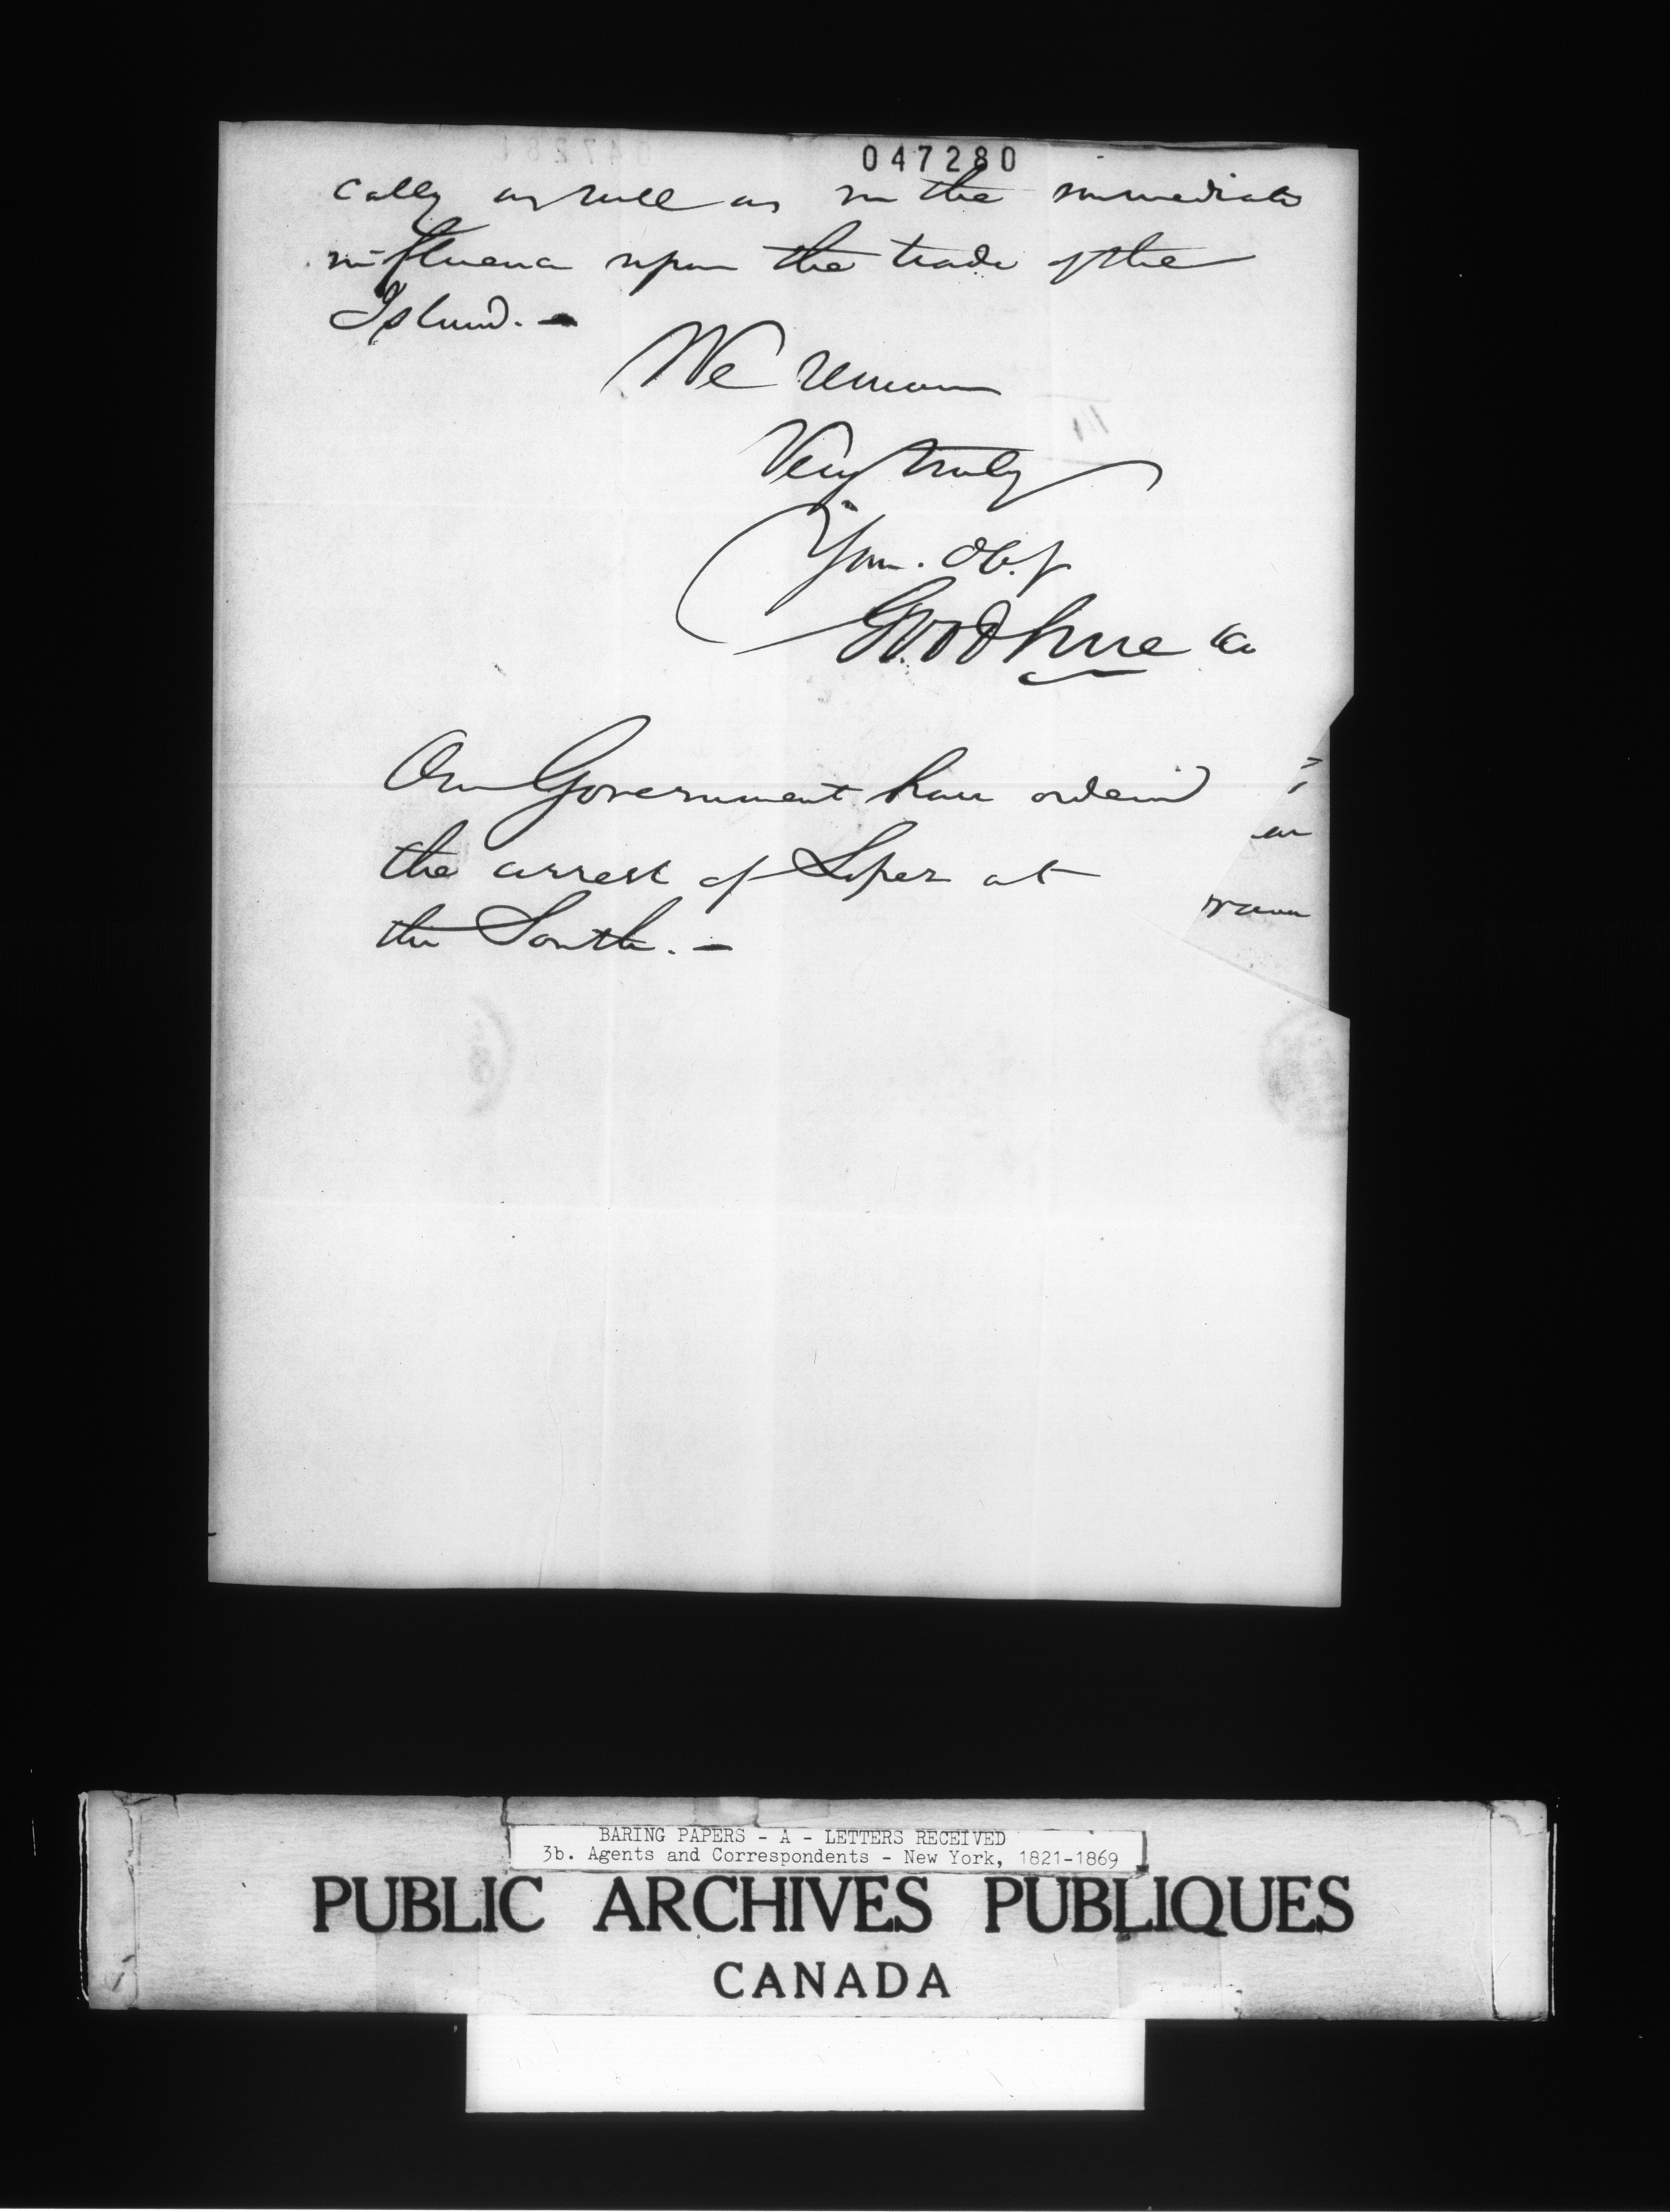 047280
cally as well as in the immediate
influence upon the trade of the
Island. -
We remain
Very truly
Your. Ob.
Goodhue & Co
Our Government have ordered
the arrest of Lopez at
the South. -
BARING PAPERS - A - LETTERS RECEIVED
3b. Agents and Correspondents - New York, 1821-1869
PUBLIC ARCHIVES PUBLIQUES
CANADA